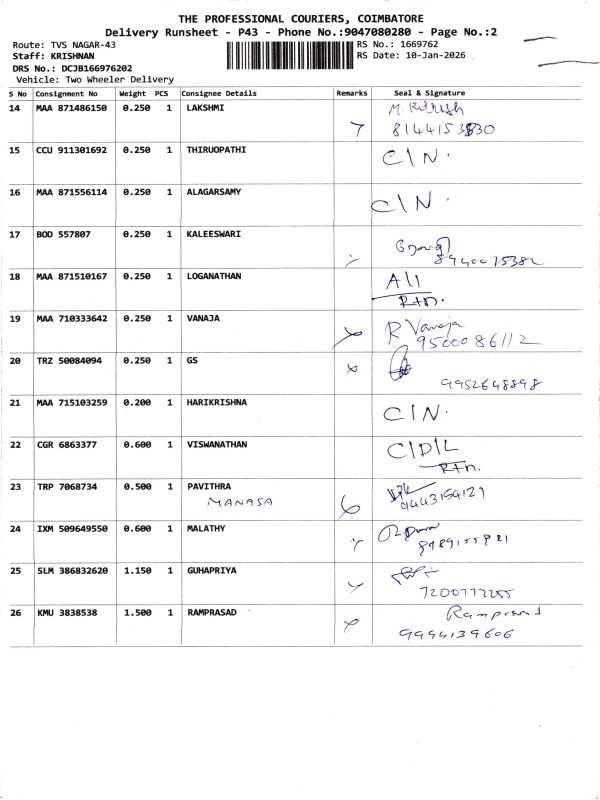 THE PROFESSIONAL COURIERS, COIMBATORE
Delivery Runsheet - P43 - Phone No.:9047080280 - Page No.:2
Route: TVS NAGAR-43
Staff: KRISHNAN
DRS No.: DCJB166976202
Vehicle: Two Wheeler Delivery
RS No.: 1669762
RS Date: 10-Jan-2026
S No Consignment No Weight PCS Consignee Details Remarks Seal & Signature
14 MAA 871486150 0.250 1 LAKSHMI
15 CCU 911301692 0.250 1 THIRUOPATHI C|N.
16 MAA 871556114 0.250 1 ALAGARSAMY C|N.
17 BOD 557807 0.250 1 KALEESWARI
18 MAA 871510167 0.250 1 LOGANATHAN
Rtn.
19 MAA 710333642 0.250 1 VANAJA R Vanaja
9500086112
20 TRZ 50084094 0.250 1 GS
9952648898
21 MAA 715103259 0.200 1 HARIKRISHNA C|N.
22 CGR 6863377 0.600 1 VISWANATHAN C|D|L
Rtn.
23 TRP 7068734 0.500 1 PAVITHRA
MANASA
24 IXM 509649550 0.600 1 MALATHY
25 SLM 386832620 1.150 1 GUHAPRIYA
7200772255
26 KMU 3838538 1.500 1 RAMPRASAD Ramprasad
9994139606